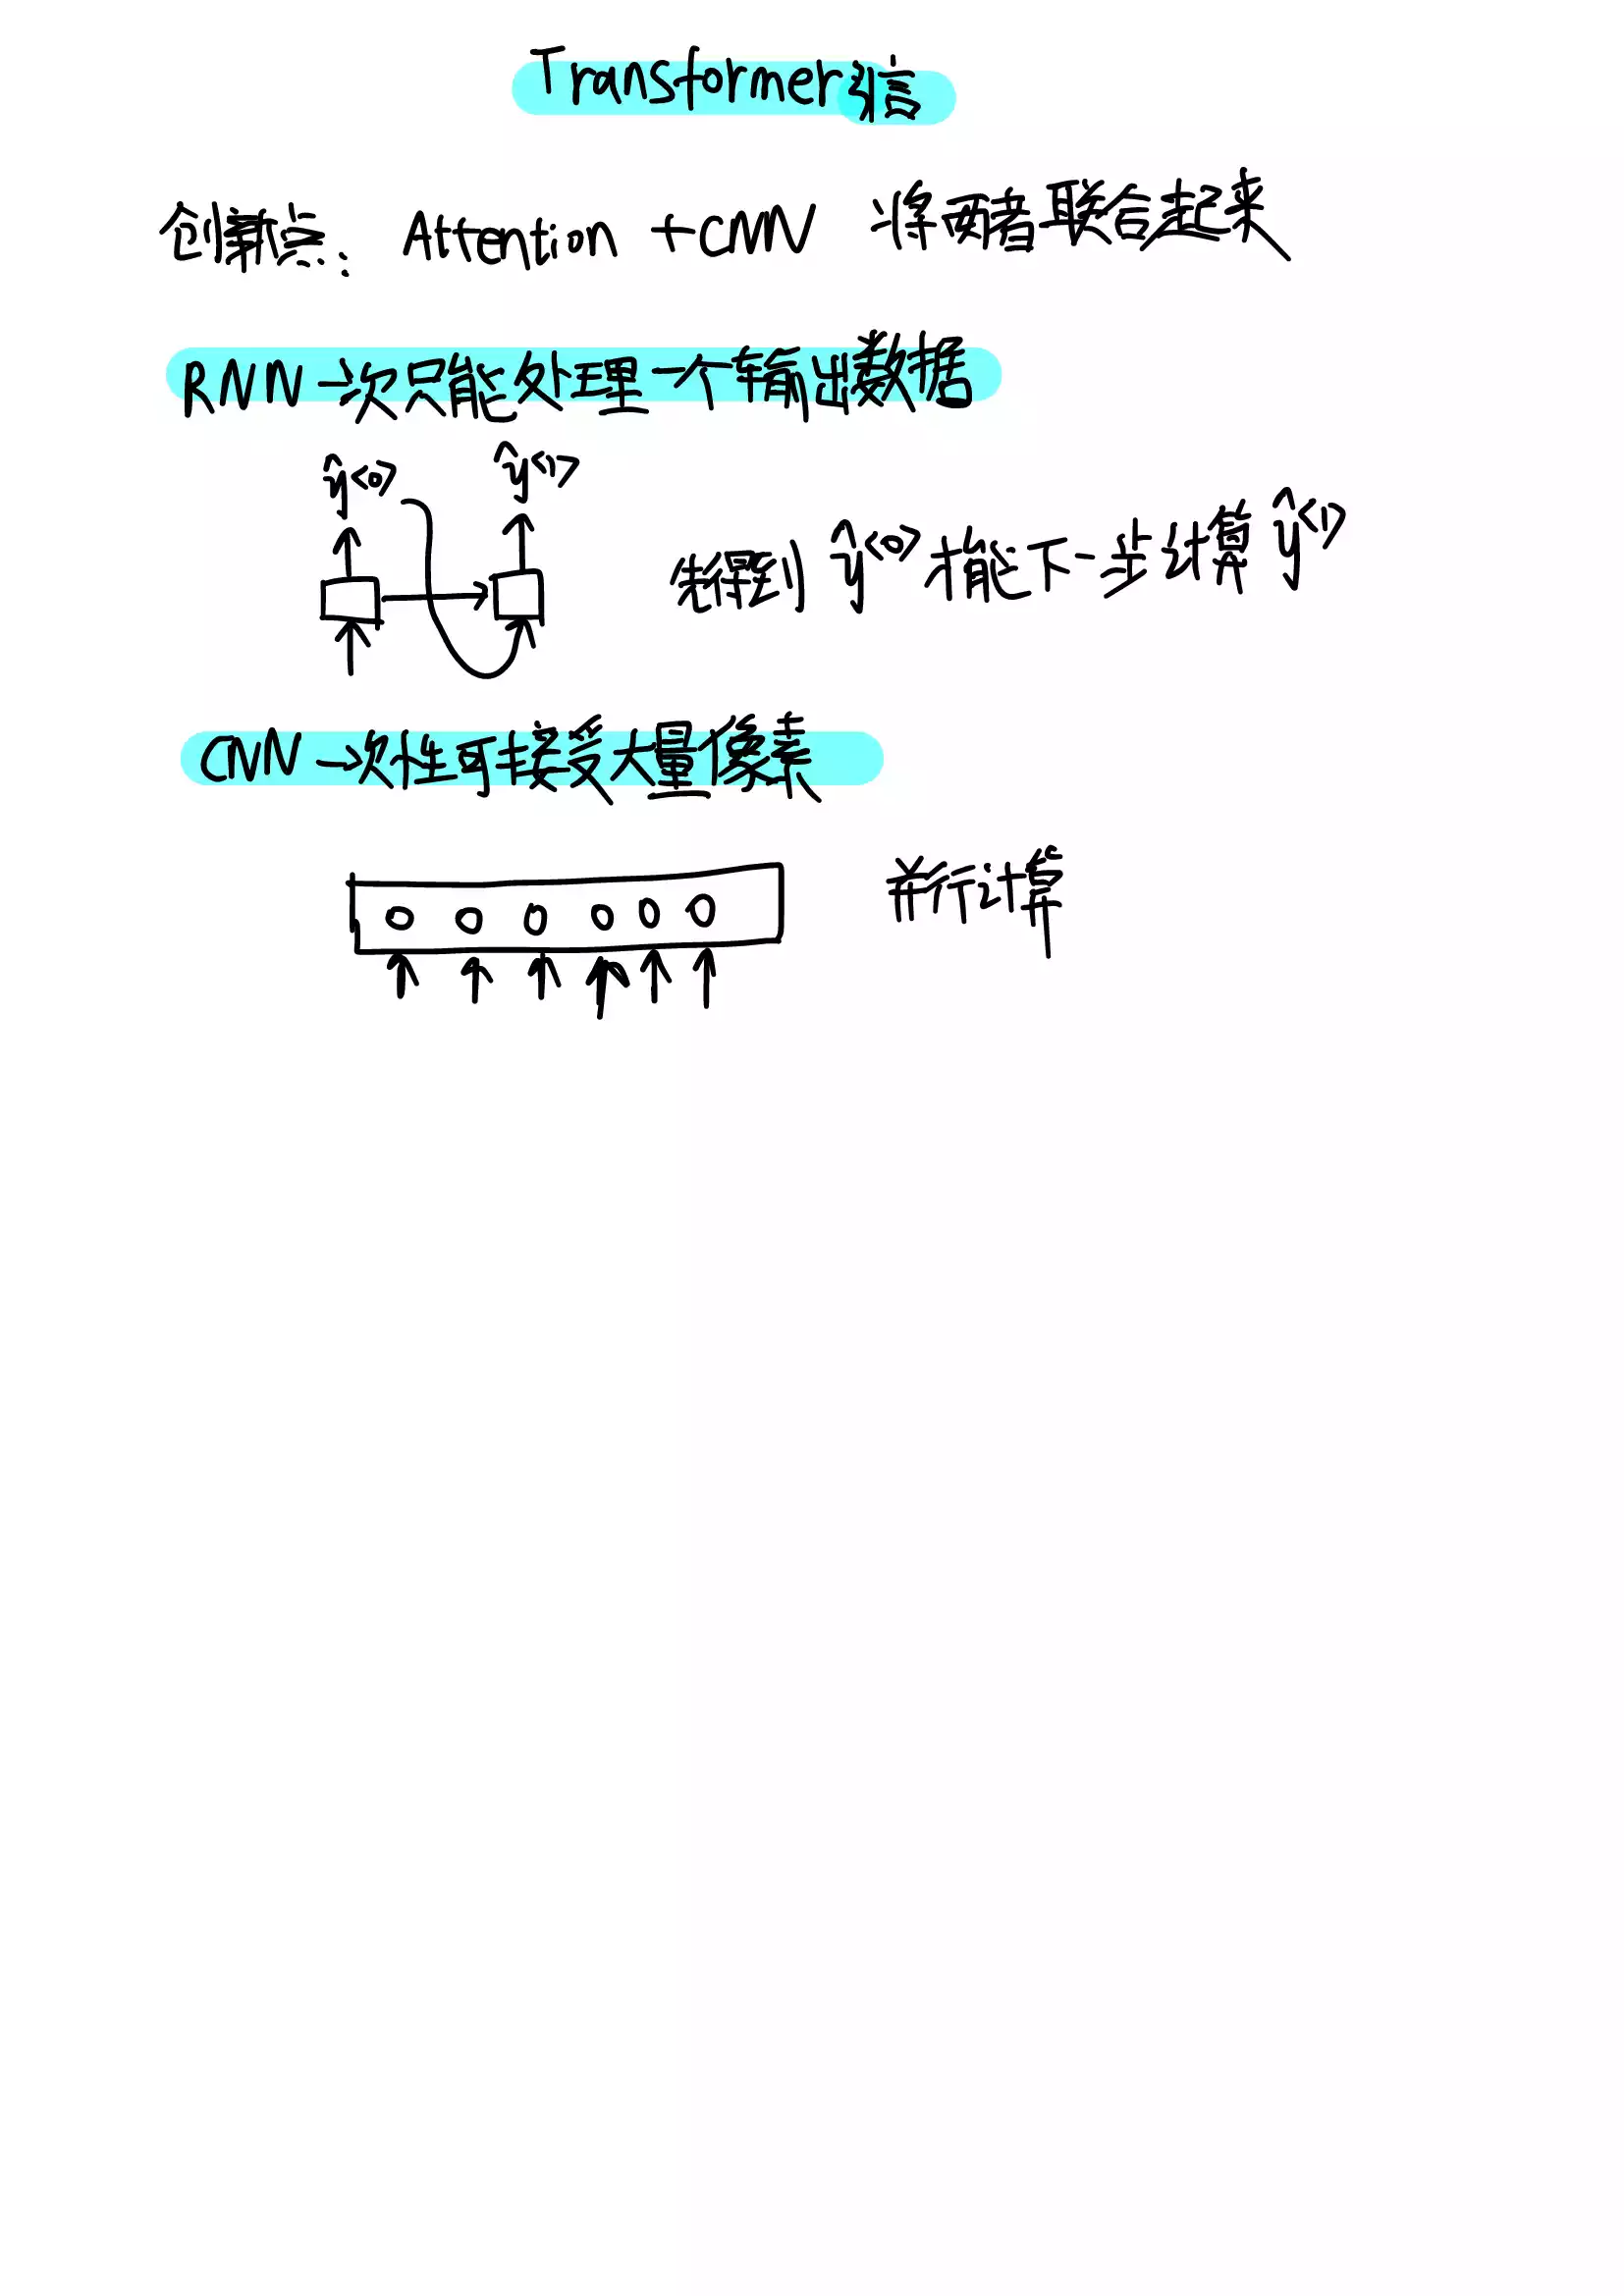 Transformer引言
创新点: Attention +CNN 将两者联合起来
RNN一次只能处理一个输出数据
ŷ<0> ŷ<1>
先得到 ŷ<0> 才能下一步计算 ŷ<1>
CNN一次性可接受大量像素
并行计算